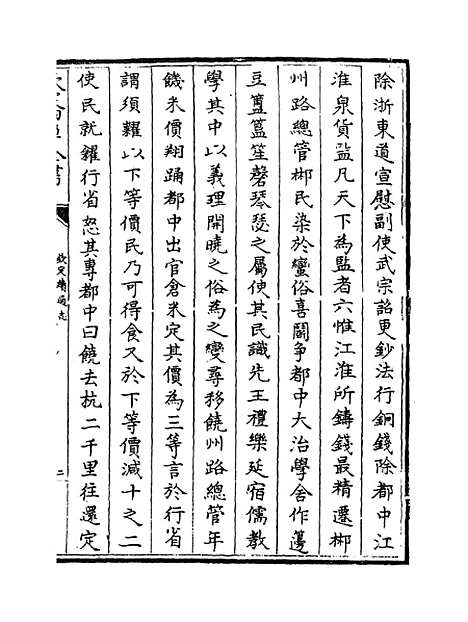 除浙東道宣慰副使武宗詔更鈔法行銅錢除都中江
淮泉貨監凡天下為監者六惟江淮所鑄錢最精遷郴
州路總管郴民染於蠻俗喜鬬争都中大治學舍作籩
豆簠簋笙磬琴瑟之屬使其民識先王禮樂延宿儒教
學其中以義理開曉之俗為之變尋移饒州路總管年
饑米價翔踊都中出官倉米定其價為三等言於行省
謂須糶以下等價民乃可得食又於下等價減十之二
使民就糴行省怒其專都中曰饒去杭二千里往還定
欽定續通志